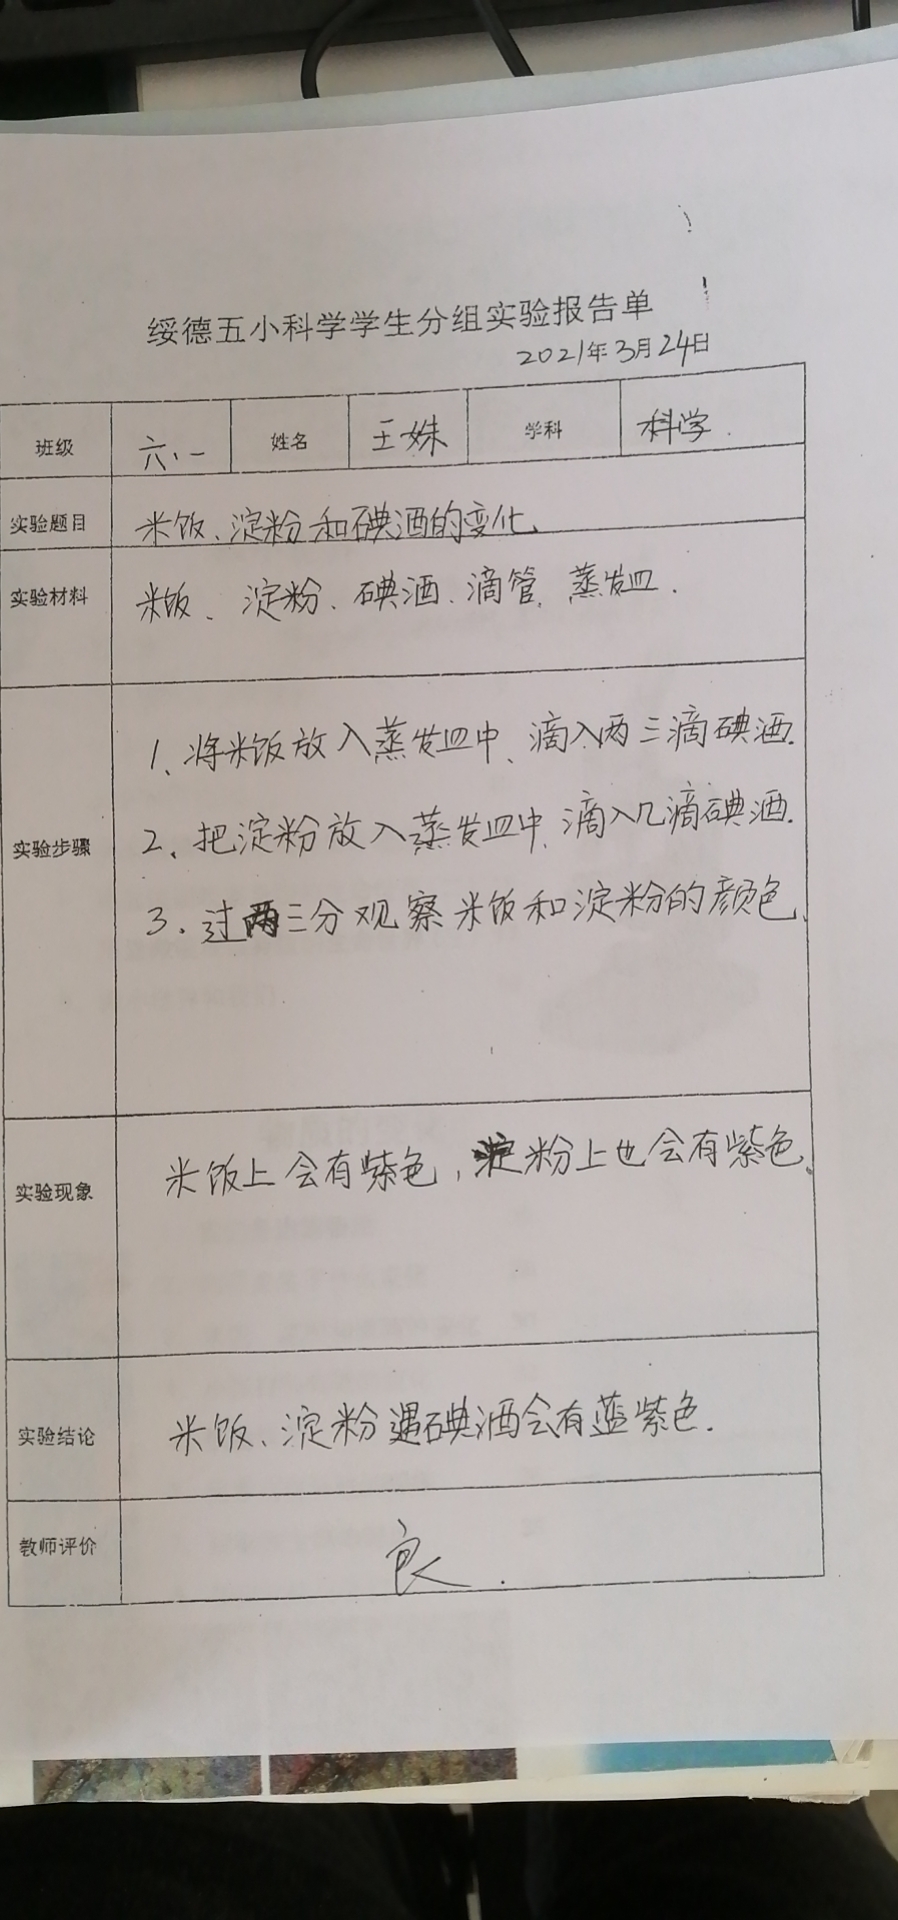 绥德五小科学学生分组实验报告单
2021年3月24日
班级 六.一 姓名 王姝 学科 科学.
实验题目 米饭、淀粉和碘酒的变化
实验材料 米饭、淀粉、碘酒、滴管、蒸发皿.
1、将米饭放入蒸发皿中、滴入两三滴碘酒.
实验步骤 2、把淀粉放入蒸发皿中,滴入几滴碘酒.
3.过两三分观察米饭和淀粉的颜色.
实验现象 米饭上会有紫色,淀粉上也会有紫色.
实验结论 米饭、淀粉遇碘酒会有蓝紫色.
教师评价 良.